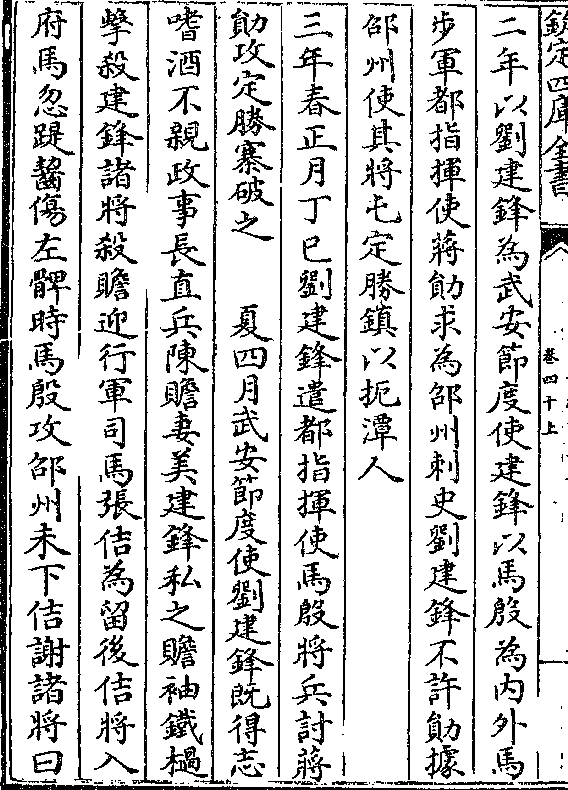 欽定四庫全書
卷四十上
二年以劉建鋒為武安節度使建鋒以馬殷為內外馬
步軍都指揮使蔣勛求為邵州刺史劉建鋒不許勛據
邵州使其將屯定勝鎮以扼潭人
三年春正月丁巳劉建鋒遣都指揮使馬殷將兵討蔣
勛攻定勝寨破之　夏四月武安節度使劉建鋒既得志
嗜酒不親政事長直兵陳贍妻美建鋒私之贍袖鐵檛
擊殺建鋒諸將殺贍迎行軍司馬張佶為留後佶將入
府馬忽踶齧傷左髀時馬殷攻邵州未下佶謝諸將曰